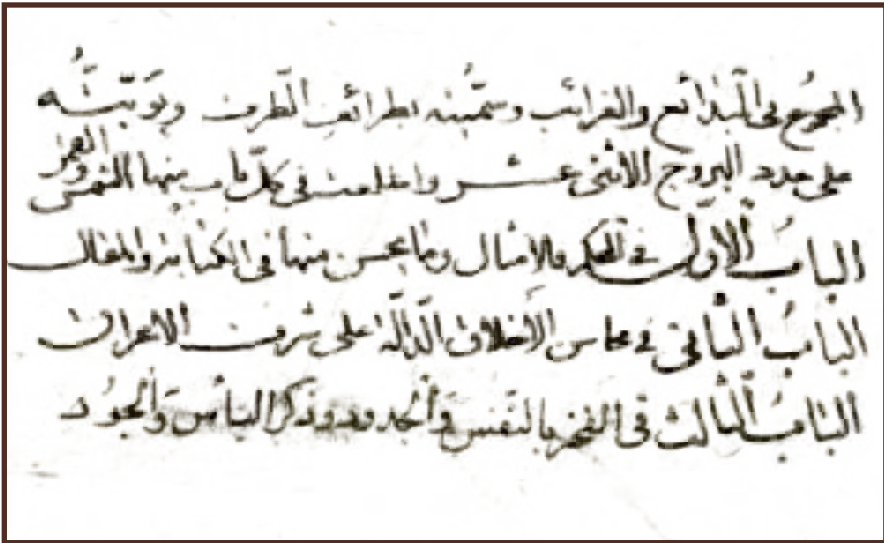 المجموع في البدائع والغرائب وسميته بطرائف الطرف وبوبته
على عدد البروج الاثنى عشر واطلعت في كل باب منها الشمس والقمر
الباب الأول في الحكم والامثال وما يحسن منها في الكتابة والمقال
الباب الثاني في محاسن الأخلاق الدالة على شرف الاعراق
الباب الثالث في الفخر بالنفس والجدود وذكر البأس والجود